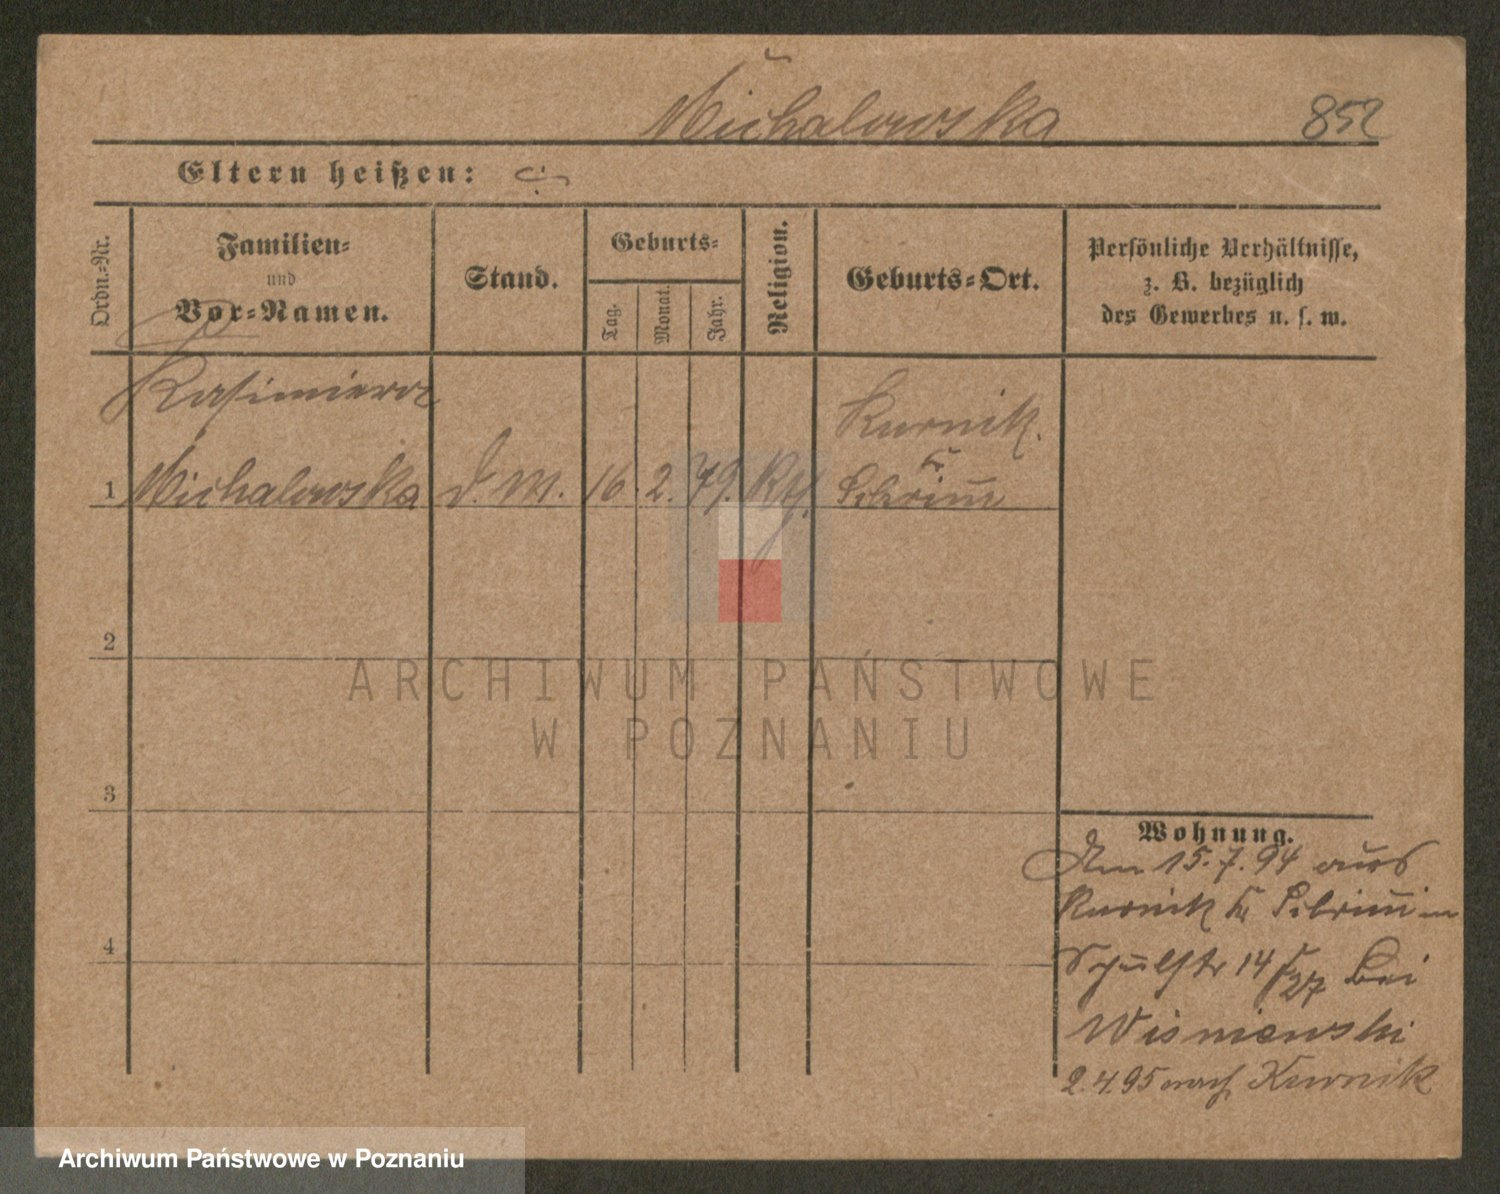 Michalowska 852
Eltern heißen:
Ordn.-Nr.
Familien-
und
Vor-Namen.
Stand.
Geburts-
Tag.
Monat.
Jahr.
Religion.
Geburts-Ort.
Persönliche Verhältnisse,
z. B. bezüglich
des Gewerbes u. s. w.
Kasimiera
Kurnik.
1 Michalowska d. M. 16. 2. 79. Kth. Kr Schrimm
2
ARCHIWUM PAŃSTWOWE
W POZNANIU
3
Wohnung.
Am 15.7.94 aus
Kurnik Kr Schrimm
4
Schulstr 14 bei
Wisniewski
2.4.95 nach Kurnik
Archiwum Państwowe w Poznaniu